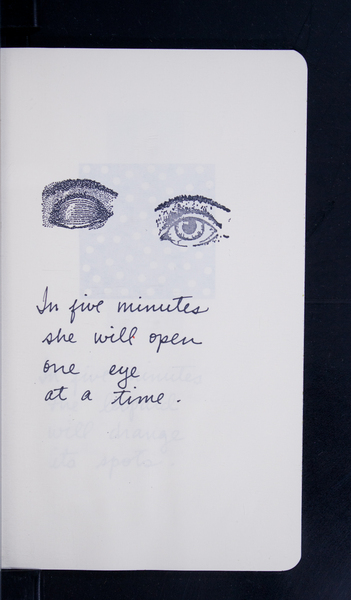 In five minutes
she will open
one eye
at a time.